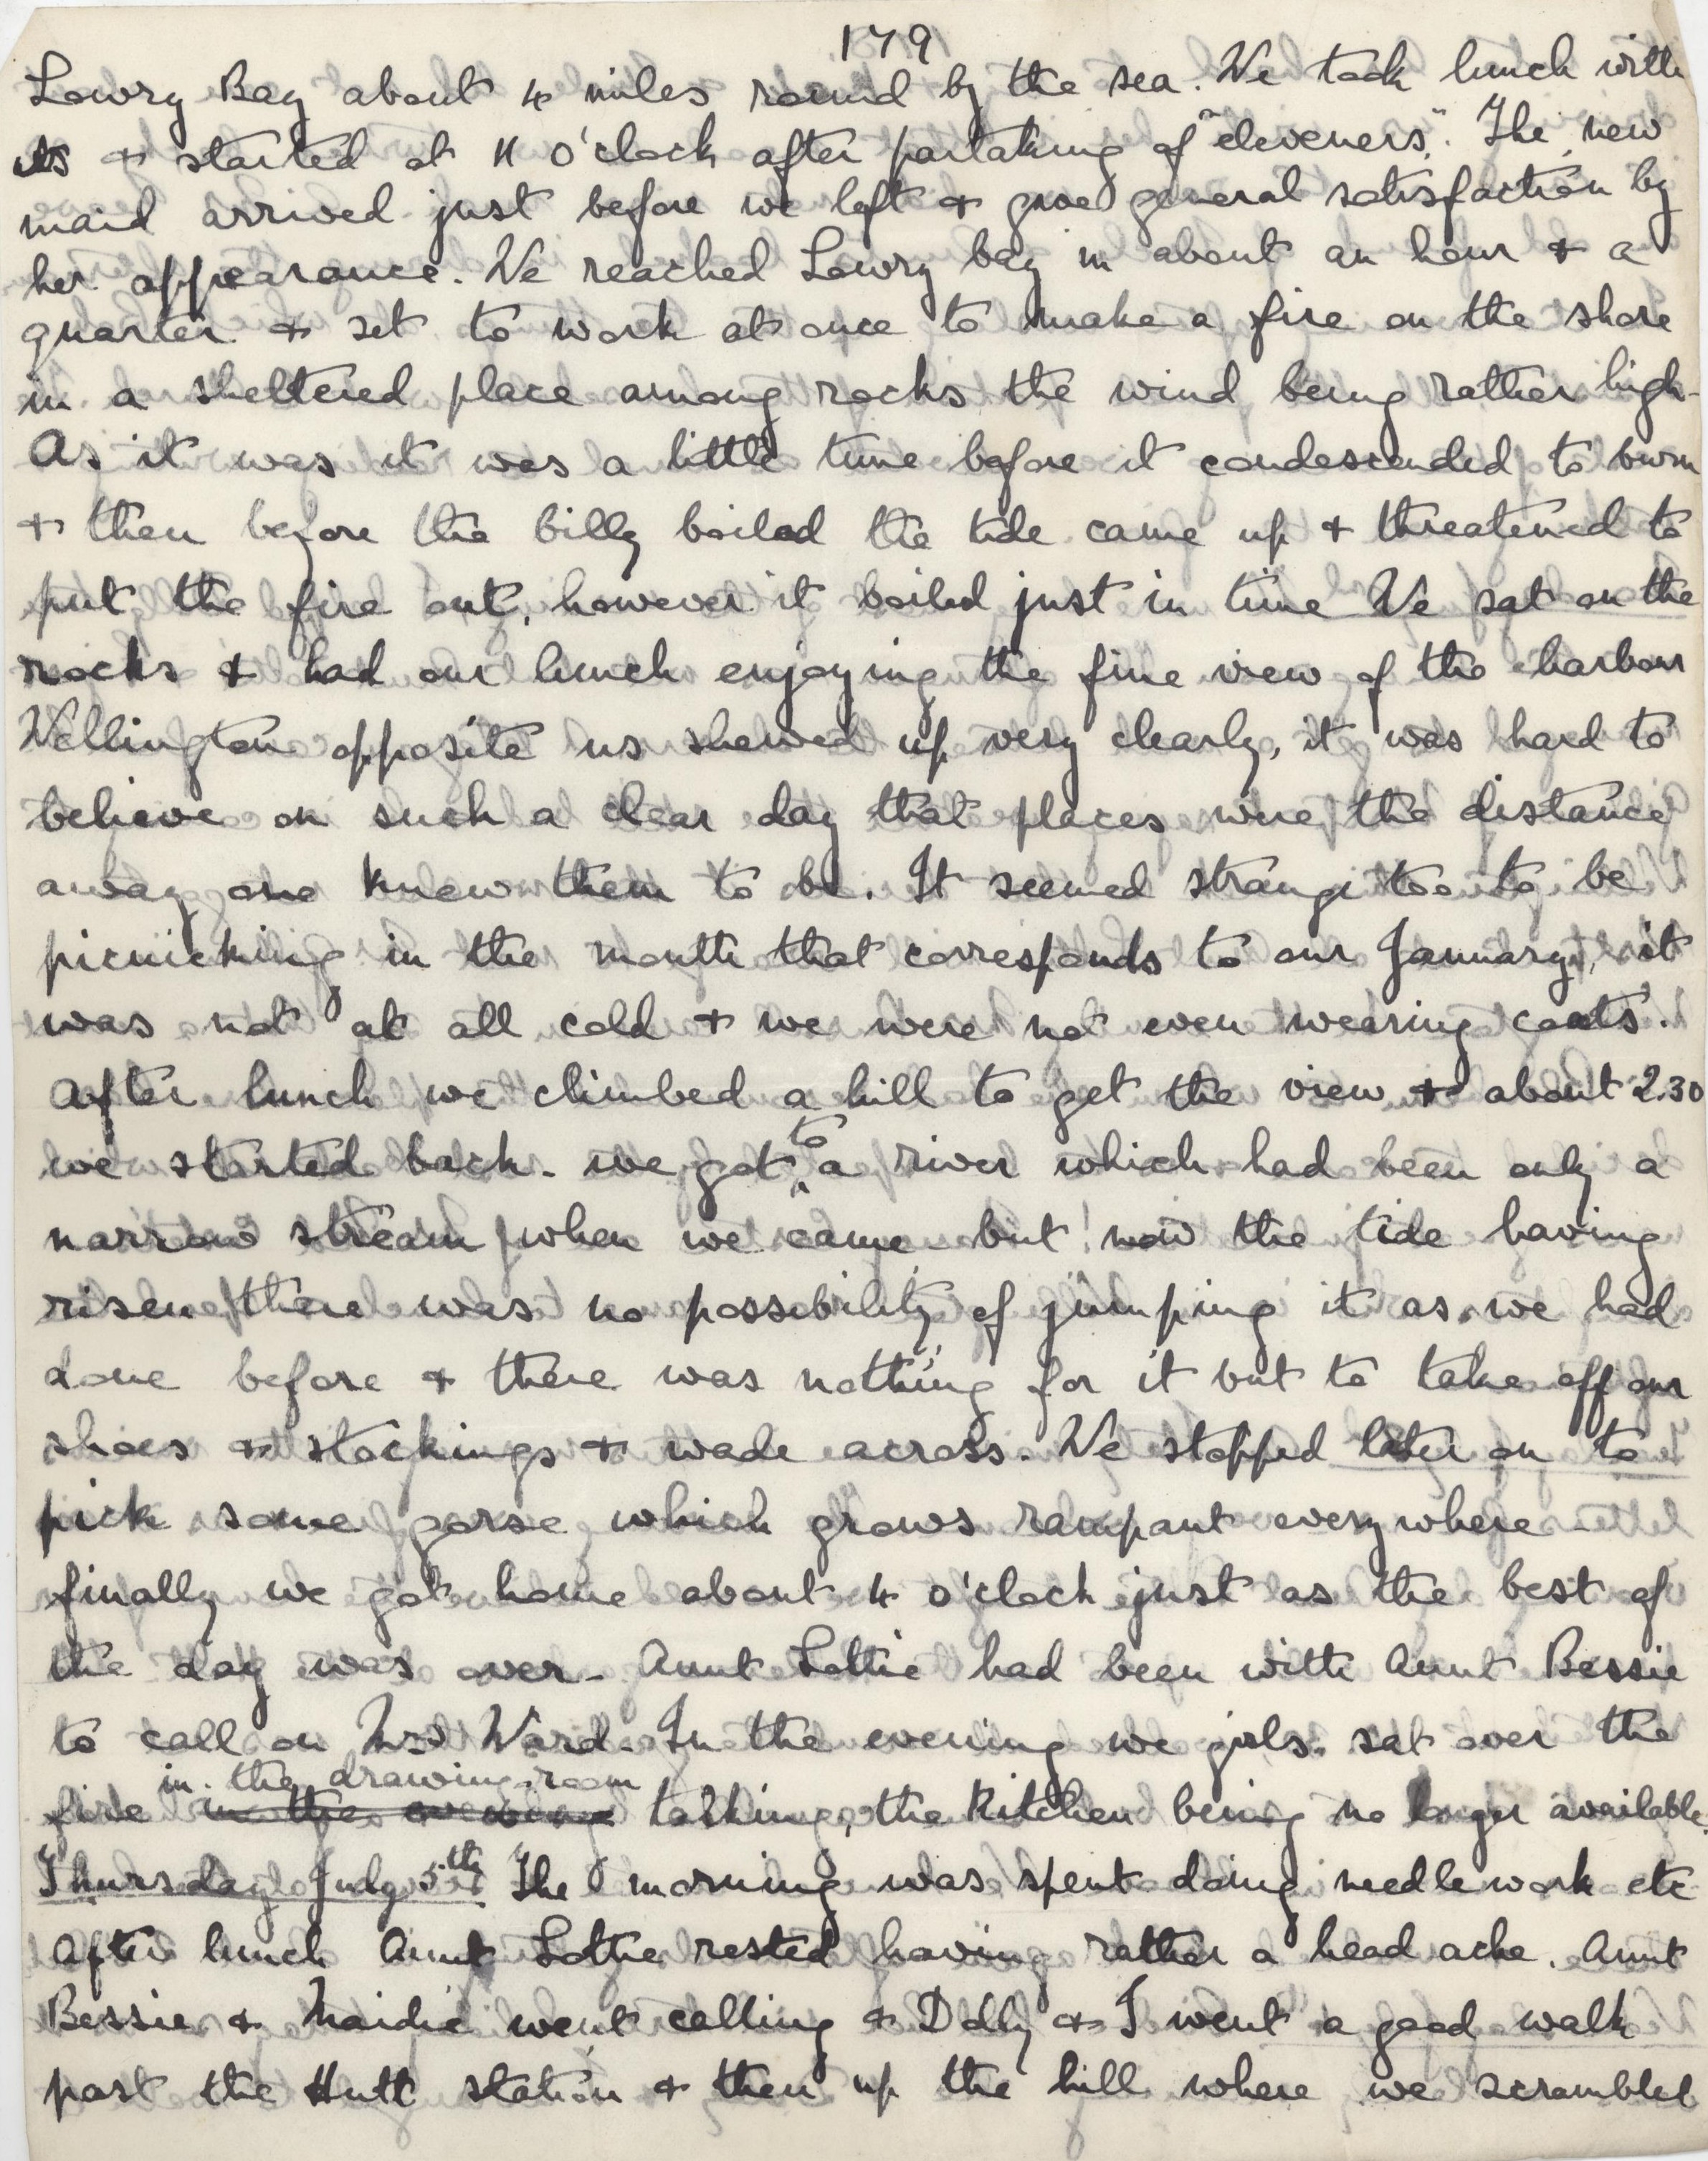 179
Lowry Bay about 4 miles round by the sea. We took lunch with
us & started at 11 o'clock after partaking of "eleveners". The new
maid arrived just before we left & gave general satisfaction by
her appearance. We reached Lowry bay in about an hour & a
quarter & set to work at once to make a fire on the shore
in a sheltered place among rocks the wind being rather high -
As it was it was a little time before it condescended to burn
& then before the billy boiled the tide came up & threatened to
put the fire out, however it boiled just in time We sat on the
rocks & had our lunch enjoying the fine view of the harbour
Wellington opposite us shewed up very clearly, it was hard to
believe on such a clear day that places were the distance
away one knew them to be. It seemed strange too to be
picnicking in the month that corresponds to our January, it
was not at all cold & we were not even wearing coats.
After lunch we climbed a hill to get the view & about 2.30
we started back - we got to a river which had been only a
narrow stream when we came but now the tide having
risen there was no possibility of jumping it as we had
done before & there was nothing for it but to take off our
shoes & stockings & wade across. We stopped later on to
pick some gorse which grows rampant everywhere -
finally we got home about 4 o'clock just as the best of
the day was over - Aunt Lottie had been with Aunt Bessie
to call on Mrs Ward - In the evening we girls sat over the
in the drawing room
fire in the talking, the kitchen being no longer available.
Thursday July 5th The morning was spent doing needlework etc
After lunch Aunt Lottie rested having rather a head ache. Aunt
Bessie & Maidie went calling & Dolly & I went a good walk
past the Hutt station & then up the hill where we scrambled